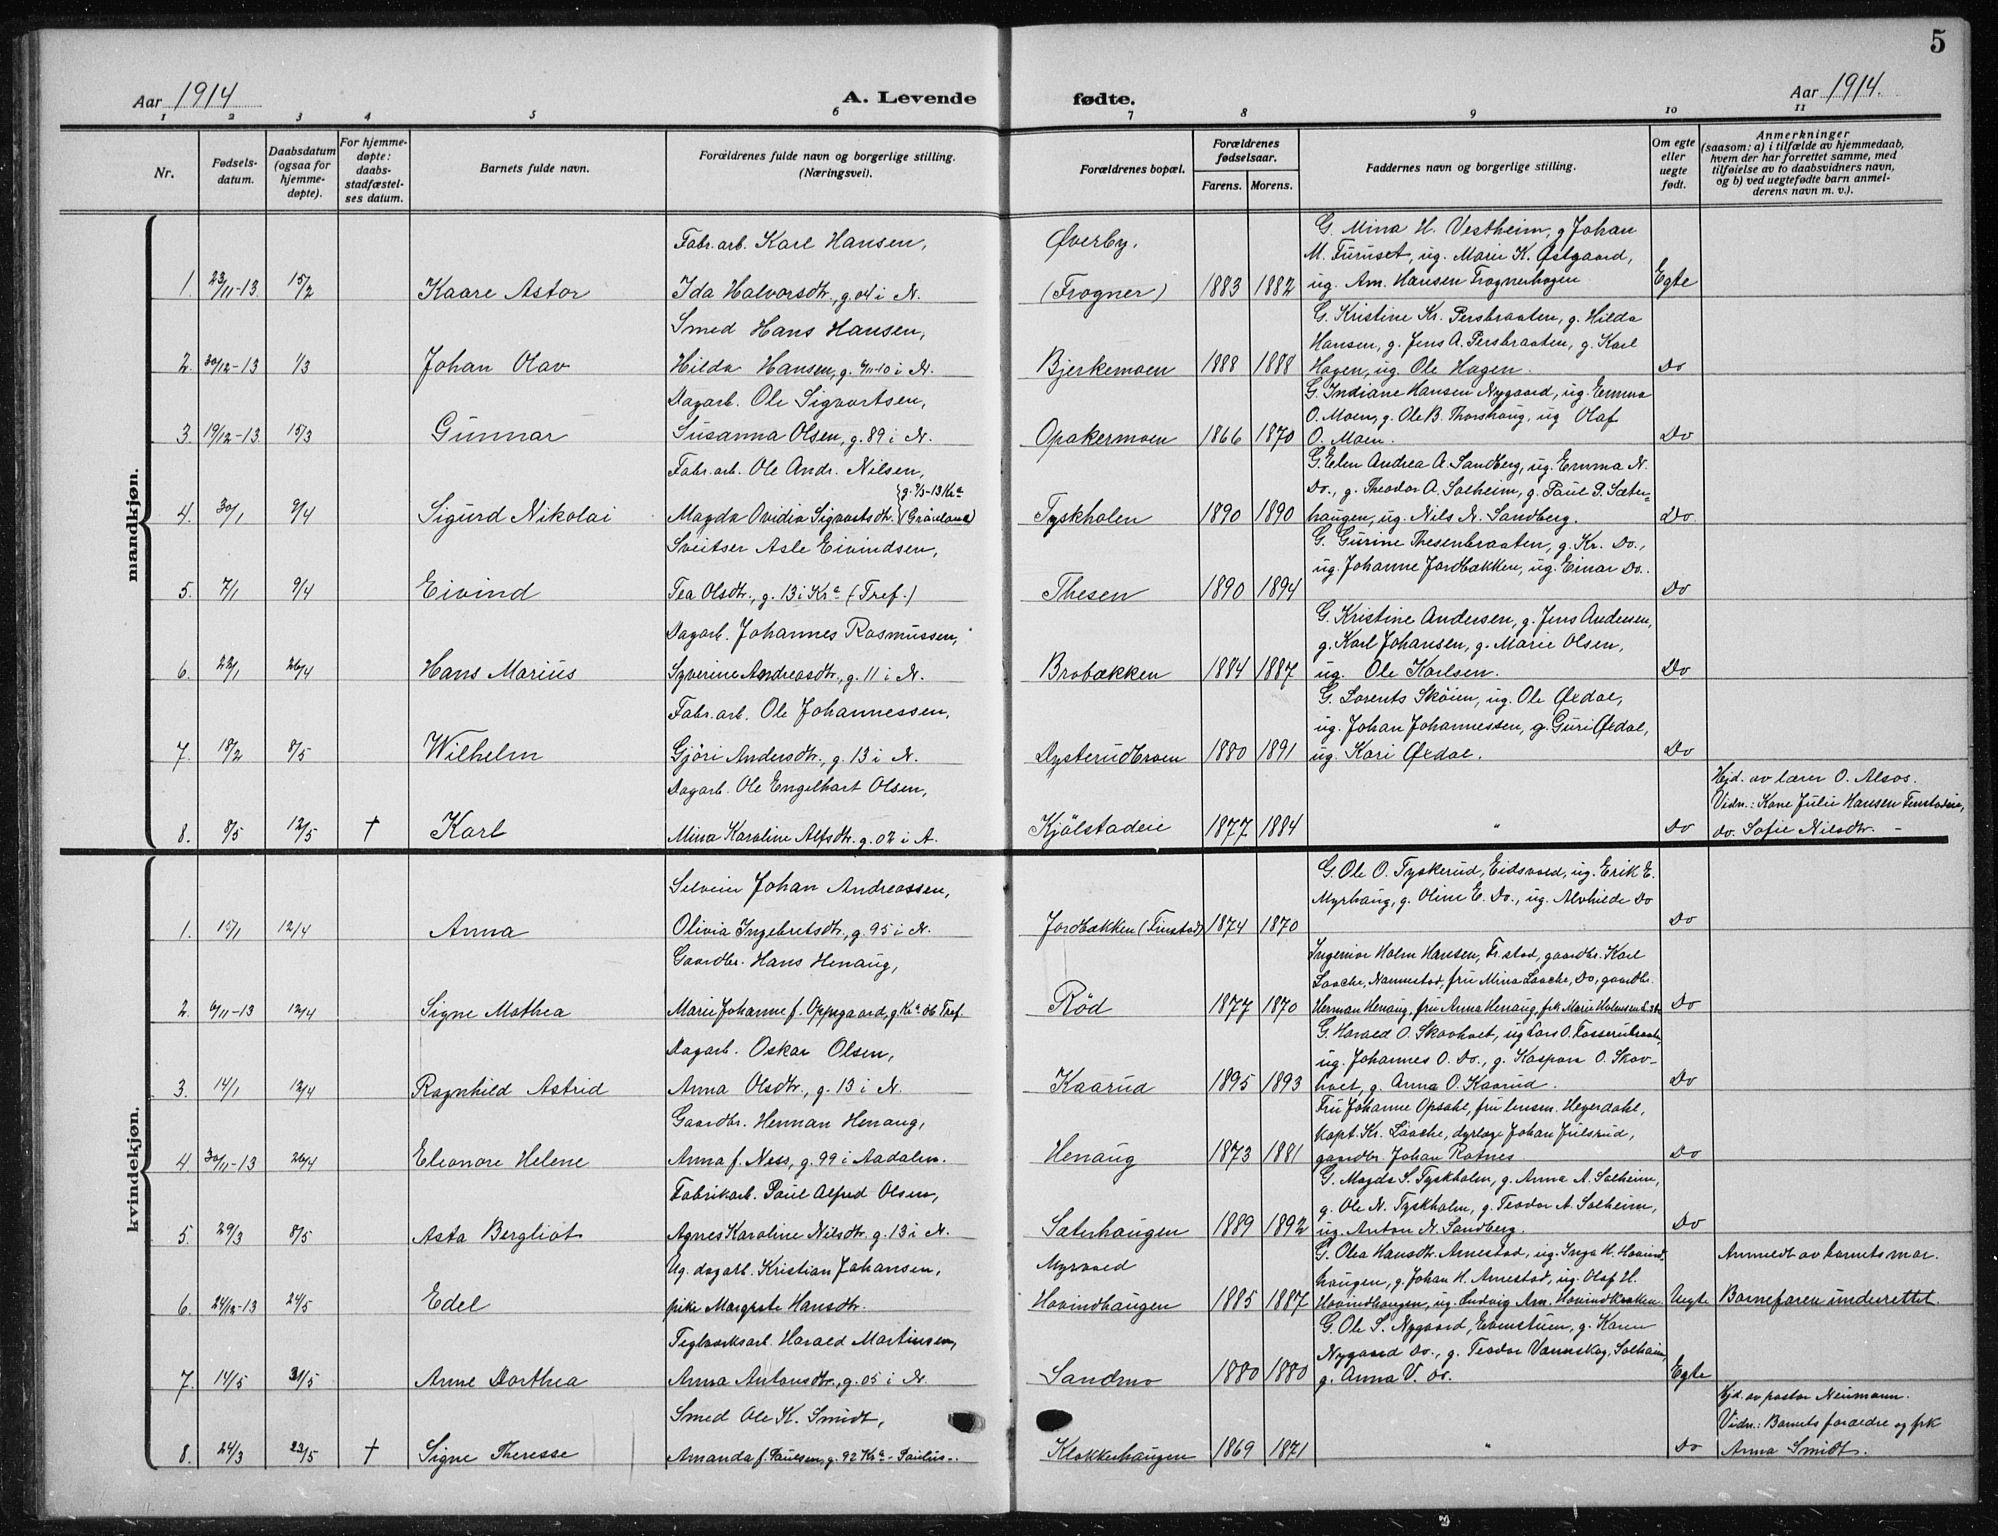 5
Aar 1914
A. Levende
fødte.
Aar 1914.
1 2 3 4 5 6 7 8 9 10 11
Nr.
Fødsels-
datum.
Daabsdatum
(ogsaa for
hjemme-
døpte).
For hjemme-
døpte:
daabs-
stadfæstel-
ses datum.
Barnets fulde navn.
Forældrenes fulde navn og borgerlige stilling.
(Næringsvei).
Forældrenes bopæl.
Forældrenes
fødselsaar.
Farens. Morens.
Faddernes navn og borgerlige stilling.
Om egte
eller
uegte
født.
Anmerkninger
(saasom: a) i tilfælde av hjemmedaab,
hvem der har forrettet samme, med
tilføielse av to daabsvidners navn,
og b) ved uegtefødte barn anmel-
derens navn m. v.).
mandkjøn.
Fabr. arb. Karl Hansen, Øverby. G. Mina H. Vestheim, g Johan
M. Furuset, ug. Marie K. Østgaard,
1. 23/11-13 15/2 Kaare Astor Ida Halvorsdtr., g. 04 i N. (Frogner) 1883 1882 ug. Am. Hansen Frognerhagen Egte
Smed Hans Hansen, G. Kristine Kr. Persbraaten, g. Hilda
Hansen, g. Jens A. Persbraaten, g. Karl
2. 30/12-13 1/3 Johan Olav Hilda Hansen, g. 6/11-10 i N. Bjerkemoen 1888 1888 Hagen, ug. Ole Hagen. Do
Dagarb. Ole Sigvartsen, G. Indiane Hansen Nygaard, ug. Emma
O. Moen, g. Ole B. Thorshaug, ug Olaf
3 19/12-13 15/3 Gunnar Susanna Olsen, g. 89 i N. Opakermoen 1866 1870 O. Moen. Do
Fabr. arb. Ole Andr. Nilsen, G. Elen Andrea A. Sandberg, ug. Emma N.
{g. 9/5-13 Kr.a Do., g. Theodor A. Solheim, g. Paul P. Sæter-
4. 30/1 9/4 Sigurd Nikolai Magda Ovidia Sigvartsdtr. (Grönland) Tyskholen 1890 1890 haugen, ug. Nils N. Sandberg. Do
Sveitser Asle Eivindsen, G. Gurine Thesenbraaten, g. Kr. Do.,
ug. Johanne Jordbækken, ug. Einar Do.
5. 7/1 9/4 Eivind Tea Olsdtr., g. 13 i Kr.a (Tref.) Thesen 1890 1894 Do
Dagarb. Johannes Rasmussen, G. Kristine Andersen, g. Jens Andersen,
g. Karl Johansen, g. Marie Olsen,
6. 22/1 26/4 Hans Marius Syverine Andreasdtr., g. 11 i N. Brobækken 1884 1887 ug. Ole Karlsen. Do
Fabr. arb. Ole Johannessen, G. Lorents Skøien, ug. Ole Øxdal,
ug. Johan Johannessen, g. Guri Øxdal,
7. 18/2 8/5 Wilhelm Gjöri Andersdtr., g. 13 i N. Dysterudbroen 1880 1891 ug. Kari Øxdal. Do
Dagarb. Ole Engelhart Olsen, Hjd. av lærer O. Alsos.
Vidn.: Kone Julie Hansen Finstadeie,
8. 8/5 12/5 † Karl Mina Karoline Alfsdtr. g. 02 i A. Kjölstadeie 1877 1884 " Do do. Sofie Nilsdtr. -
kvindekjøn.
Selveier Johan Andreassen, G. Ole O. Tyskerud, Eidsvold, ug. Erik E.
Myrhaug, g. Oline E. Do., ug. Alvhilde Do
1. 15/1 12/4 Anna Olivia Ingebretsdtr., g. 95 i N. Jordbækken (Finstad) 1874 1870 Do
Gaardbr. Hans Henaug, Ingemor Holm Hansen, Fr.stad, gaardbr. Karl
Laache, Nannestad, fru Mina Laache, Do, gaardbr.
2. 6/11-13 12/4 Signe Mathea Marie Johanne f. Oppegaard, g. Kr.a 06 Tref. Rød 1877 1870 Herman Henaug, fru Anna Henaug, frk Marie Do
Dagarb. Oskar Olsen, G. Harald O. Skovhvet, ug Lars O. Fosserudbraaten,
ug. Johannes O. Do., g. Kaspara O. Skov-
3. 14/1 12/4 Ragnhild Astrid Anna Olsdtr., g. 13 i N. Kaarud 1895 1893 hvet, g. Anna O. Kaarud. Do
Gaardbr. Herman Henaug, Fru Johanne Opsahl, fru Heyerdahl,
kapt. Kr. Laache, dyrlæge Johan Julsrud,
4 30/11-13 26/4 Eleonore Helene Anna f. Ness, g. 99 i Aadalen. Henaug 1873 1881 gaardbr. Johan Rotnes Do
Fabrikarb. Paul Alfred Olsen, G. Magda S. Tyskholen, g. Anna A. Solheim,
g. Ole N. Tyskholm, g. Teodor A. Solheim,
5. 29/3 8/5 Asta Bergliot Agnes Karoline Nilsdtr. g. 13 i N. Sæterhaugen 1889 1892 ug. Anton N. Sandberg. Do
Ug. dagarb. Kristian Johansen, Myrvold G. Olea Hansdtr. Arnestad, ug. Inga H. Hovind- Anmeldt av barnets mor.
haugen, g. Johan H. Arnestad, ug. Olaf H.
6. 24/12-13 24/5 Edel pike Margrete Hansdtr. Hovindhaugen 1885 1887 Hovindhaugen, ug. Ludvig Am. Hovindkroken. Uegte Barnefaren underrettet.
Teglverksarb. Harald Martinsen, G. Ole S. Nygaard, Evenstuen, g. Karen
Nygaard Do., g. Teodor Vannskog, Solheim,
7. 14/5 31/5 Anne Dorthea Anna Antonsdtr., g. 05 i N. Sandmo 1880 1880 g. Anna V. do. Egte
Smed Ole K. Smidt, Hjd. av pastor Neumann.
Vidn.: Barnets forældre og frk
8. 24/3 23/5 † Signe Therese Amanda f. Paulsen, g. 92 Kr.a - Paulus-. Klokkerhaugen 1869 1871 " Do Anna Smidt.